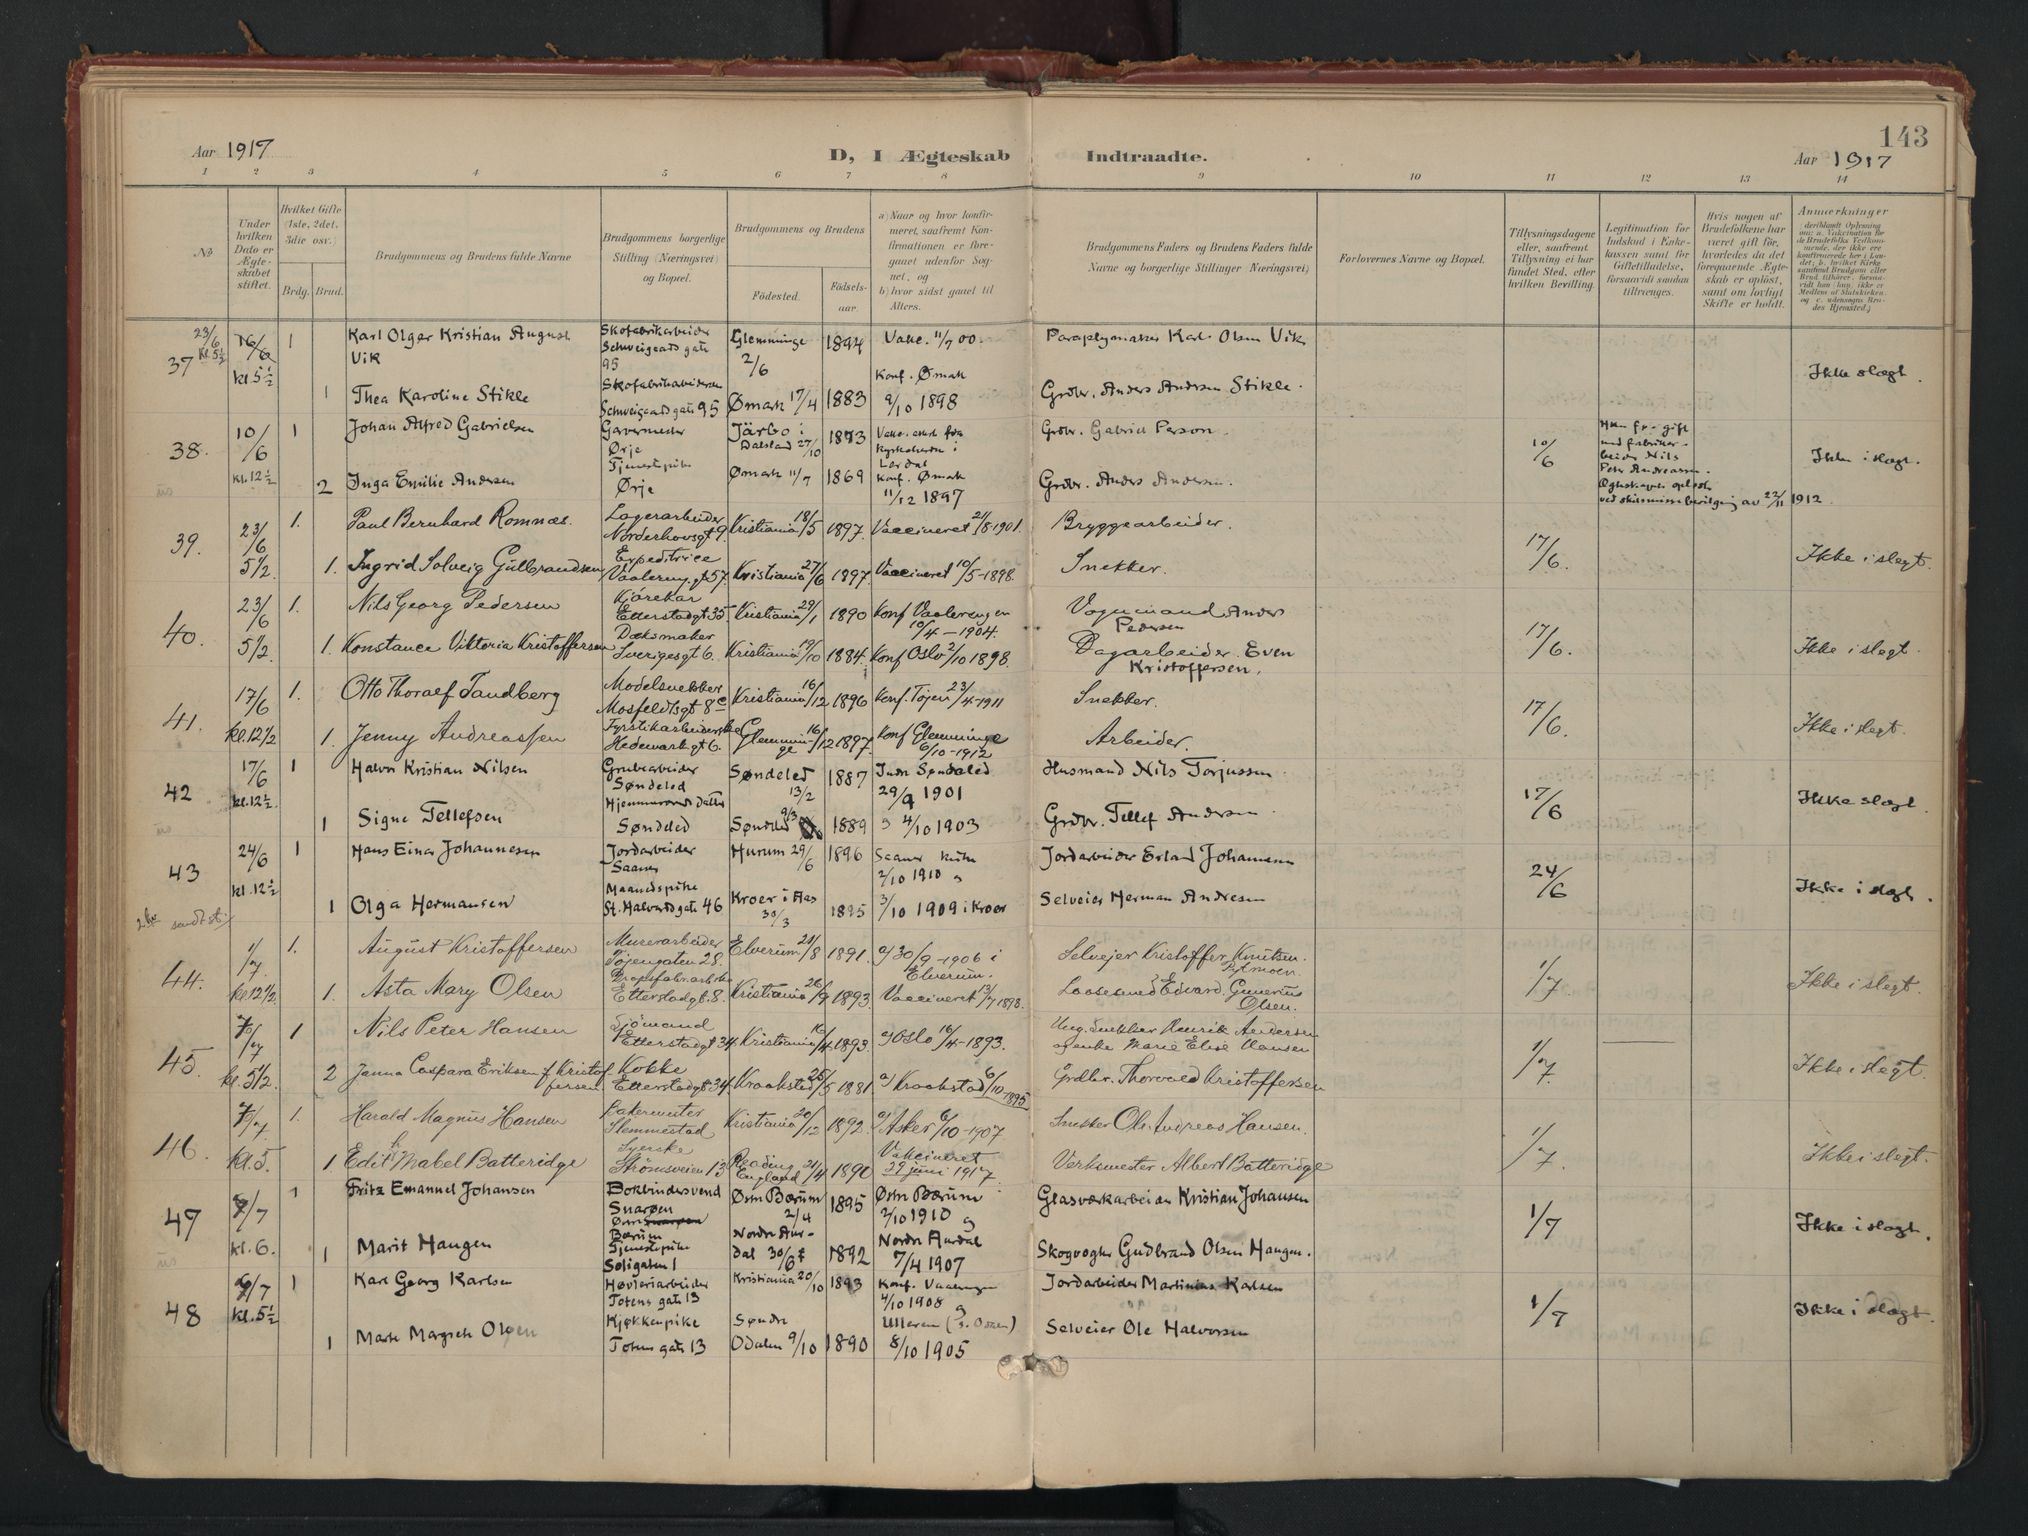 143
Aar 1917
D, I Ægteskab Indtraadte.
Aar 1917
1 2 3 4 5 6 7 8 9 10 11 12 13 14
No
Under hvilken Dato er Ægte-skabet stiftet.
Hvilket Gifte (1ste, 2det, 3die osv.)
Brdg. Brud.
Brudgommens og Brudens fulde Navne
Brudgommens borgerlige Stilling (Næringsvei) og Bopæl.
Brudgommens og Brudens
Fødested. Fødsels-aar.
a) Naar og hvor konfir-meret, saafremt Kon-firmationen er fore-gaaet udenfor Sog-net, og
b) hvor sidst gaaet til Alters.
Brudgommens Faders og Brudens Faders fulde Navne og borgerlige Stillinger Næringsvei)
Forlovernes Navne og Bopæl.
Tillysningsdagene eller, saafremt Tillysning ei har fundet Sted, efter hvilken Bevilling.
Legitimation for Indskud i Enke-kassen samt for Giftetilladelse, forsaavidt saadan tiltrænges.
Hvis nogen af Brudefolkene har været gift før, hvorledes da det foregaaende Ægte-skab er opløst, samt om lovligt Skifte er holdt.
Anmærkninger
37 23/6 kl. 5½ 16/6 kl. 5½ 1 Karl Olgar Kristian August Vik Skofabrikarbeider Schweigaards gate 95 Glemminge 2/6 1894 Vakc. 11/7 00. Paraplymaker Karl Olsen Vik
1 Thea Karoline Stikle Schweigaards gate 95 Ømark 17/4 1883 Konf. Ømark 9/10 1898 Grdbr. Anders Andersen Stikle. Ikke slægt.
38. 10/6 kl. 12½ 1 Johan Alfred Gabrielsen Ørje Järbo i Dalsland 27/10 1873 Grdbr. Gabriel Person. 10/6 Ikke i slægt.
2 Inga Emilie Andersen Tjenestepike Ørje Ømark 11/7 1869 Konf. Ømark 11/12 1897 Grdbr. Anders Andersen. av 22/11 1912
39. 23/6 5½. 1. Paul Bernhard Romnæs. Lagerarbeider Norderhovsgt 9. Kristiania 18/5 1897. Vaccineret 21/8-1901. Bryggearbeider. 17/6.
1. Ingrid Solveig Gulbrandsen Expeditrice Vaalereng.gt 57. Kristiania 27/6 1897. Vaccineret 10/5-1898. Snekker. Ikke i slegt.
40. 23/6 5½. 1. Nils Georg Pedersen Kjørekar Etterstadgt 35. Kristiania 29/1 1890 Konf Vaalerengen 10/4-1904. Vognmand Anders Pedersen 17/6.
1. Konstance Viktoria Kristoffersen Sverigesgt 6. Kristiania 19/10 1884. Konf Oslo 2/10 1898. Dagarbeider Even Kristoffersen. Ikke i slegt.
41. 17/6 kl. 12½ 1. Otto Thoralf Tandberg Modelsnekker Mosfeldtsgt 8c Kristiania 16/12 1896 Konf. Tøjen 23/4-1911 Snekker. 17/6.
1. Jenny Andreassen Hedemarksgt 6. Glemminge 16/12 1897. Konf Glemminge 6/10-1912 Arbeider. Ikke i slegt.
42 17/6 kl. 12½. 1 Halvor Kristian Nilsen Grubearbeider Søndeled Søndeled 13/2 1887 Indr Søndeled 29/9 1901 Husmand Nils Torjussen 17/6
1 Signe Tellefsen Søndeled Søndeled 9/3 1889 4/10 1903 Grdbr. Tellef Andersen Ikke slægt.
43 24/6 kl. 12½ 1 Hans Einar Johannesen Jordarbeider Saaner Hurum 29/6 1896 Saaner 2/10 1910 Jordarbeider Erland Johannesen 24/6
1 Olga Hermansen Maanedspike St. Halvards gate 46 Kroer i Aas 30/3 1895 3/10 1909 i Kroer Selveier Herman Andresen Ikke i slægt.
44. 1/7. kl. 12½. 1. August Kristoffersen Murerarbeider Tøjengaten 28. Elverum 21/8 1891. a) 30/9-1906 i Elverum. Selvejer Kristoffer Knutsen 1/7.
1. Asta Mary Olsen Etterstadgt. 8. Kristiania 26/9 1893. Vaccineret 13/7 1898. Edvard Gunerius Olsen. Ikke i slegt.
45. 7/7 kl. 5½. 1 Nils Peter Hansen Sjømand Etterstadgt 34. Kristiania 16/4 1893. a) Oslo 16/4-1893. Ung. snekker Henrik Andersen og enke Marie Elise Hansen 1/7.
2 Janna Caspara Eriksen f. Kristoffersen Kokke Etterstadgt 34. Kraakstad 25/5 1881. a) Kraakstad 6/10-1895 Grdbr. Thorvald Kristoffersen Ikke i slegt.
46. 7/7. kl. 5. 1. Harald Magnus Hansen Slemmestad Kristiania 20/12 1892. a) Asker 6/10-1907 Snekker Ole Andreas Hansen. 1/7.
1 Edith Mabel Batteridge Syerske Strømsveien 13 Reading England 21/4 1890 Vakcineret 29 juni 1917. Verksmester Albert Batteridge Ikke i slegt.
47 8/7 kl. 6. 1 Fritz Emanuel Johansen Bokbindersvend Snarøen Bærum Østre Bærum 2/4 1895 Østre Bærum 2/10 1910 Glasværkarbeider Kristian Johansen 1/7
1 Marit Haugen Tjenestepike Soligaten 1 Nordre Aurdal 30/6 1892 Nordre Aurdal 7/4 1907 Skogvogter Gudbrand Olsen Haugen. Ikke i slægt.
48 8/7 kl. 5½ 1 Karl Georg Karlsen Høvleriarbeider Totens gate 13 Kristiania 20/10 1893 Konf. Vaalerengen 4/10 1908 Jordarbeider Martinius Karlsen 1/7
1 Marte Margrete Olsen Kjøkkenpike Totens gate 13 Søndre Odalen 9/10 1890 Ulleren (S. Odalen) 8/10 1905 Selveier Ole Halvorsen Ikke i slægt.